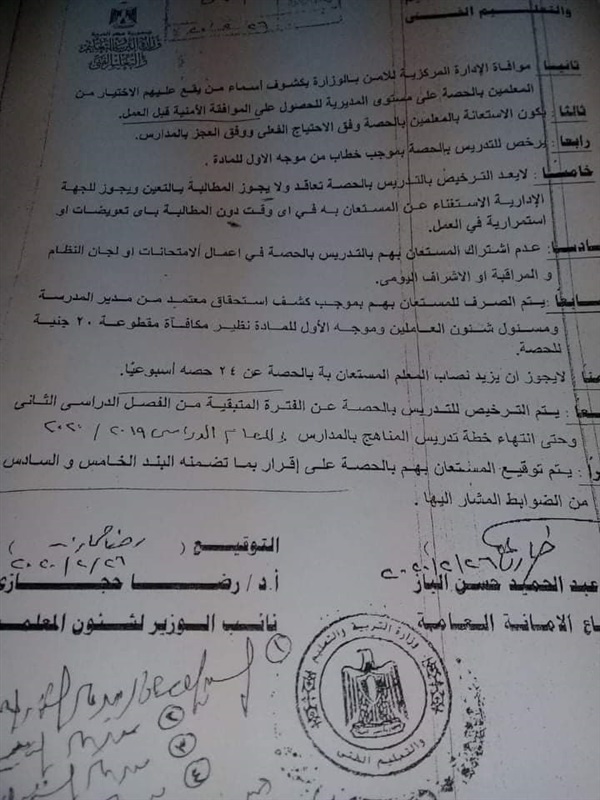 والتعليم الفنى
جمهورية مصر العربية
وزارة التربية والتعليم
والتعليم الفنى
ثانيا : موافاة الإدارة المركزية للامن بالوزارة بكشوف اسماء من يقع عليهم الاختيار من
المعلمين بالحصة على مستوى المديرية للحصول على الموافقة الأمنية قبل العمل.
ثالثا : يكون الاستعانة بالمعلمين بالحصة وفق الاحتياج الفعلى ووفق العجز بالمدارس.
رابعا : يرخص للتدريس بالحصة بموجب خطاب من موجه الاول للمادة .
خامسا : لايعد الترخيص بالتدريس بالحصة تعاقد ولا يجوز المطالبة بالتعين ويجوز للجهة
الإدارية الاستغناء عن المستعان به في اى وقت دون المطالبة باى تعويضات او
استمرارية في العمل.
سادسا : عدم اشتراك المستعان بهم بالتدريس بالحصة في اعمال الامتحانات او لجان النظام
و المراقبة او الاشراف اليومى.
سابعا : يتم الصرف للمستعان بهم بموجب كشف استحقاق معتمد من مدير المدرسة
ومسئول شئون العاملين وموجه الأول للمادة نظير مكافأة مقطوعة ٢٠ جنية
للحصة.
لايجوز ان يزيد نصاب المعلم المستعان بة بالحصة عن ٢٤ حصه أسبوعيا.
يتم الترخيص للتدريس بالحصة عن الفترة المتبقية من الفصل الدراسى الثانى
وحتى انتهاء خطة تدريس المناهج بالمدارس للعام الدراسى ٢٠١٩ / ٢٠٢٠
يتم توقيع المستعان بهم بالحصة على إقرار بما تضمنه البند الخامس و السادس
من الضوابط المشار اليها .
التوقيع ( رضا حجازى )
٢٠٢٠/٢/٢٦
٢٠٢٠/٢/٢٦
عبد الحميد حسن الباز
أ.د/ رضا حجازى
الامانة العامة
نائب الوزير لشئون المعلمين
وزارة التربية والتعليم
والتعليم الفنى
١
٢
٣
٤